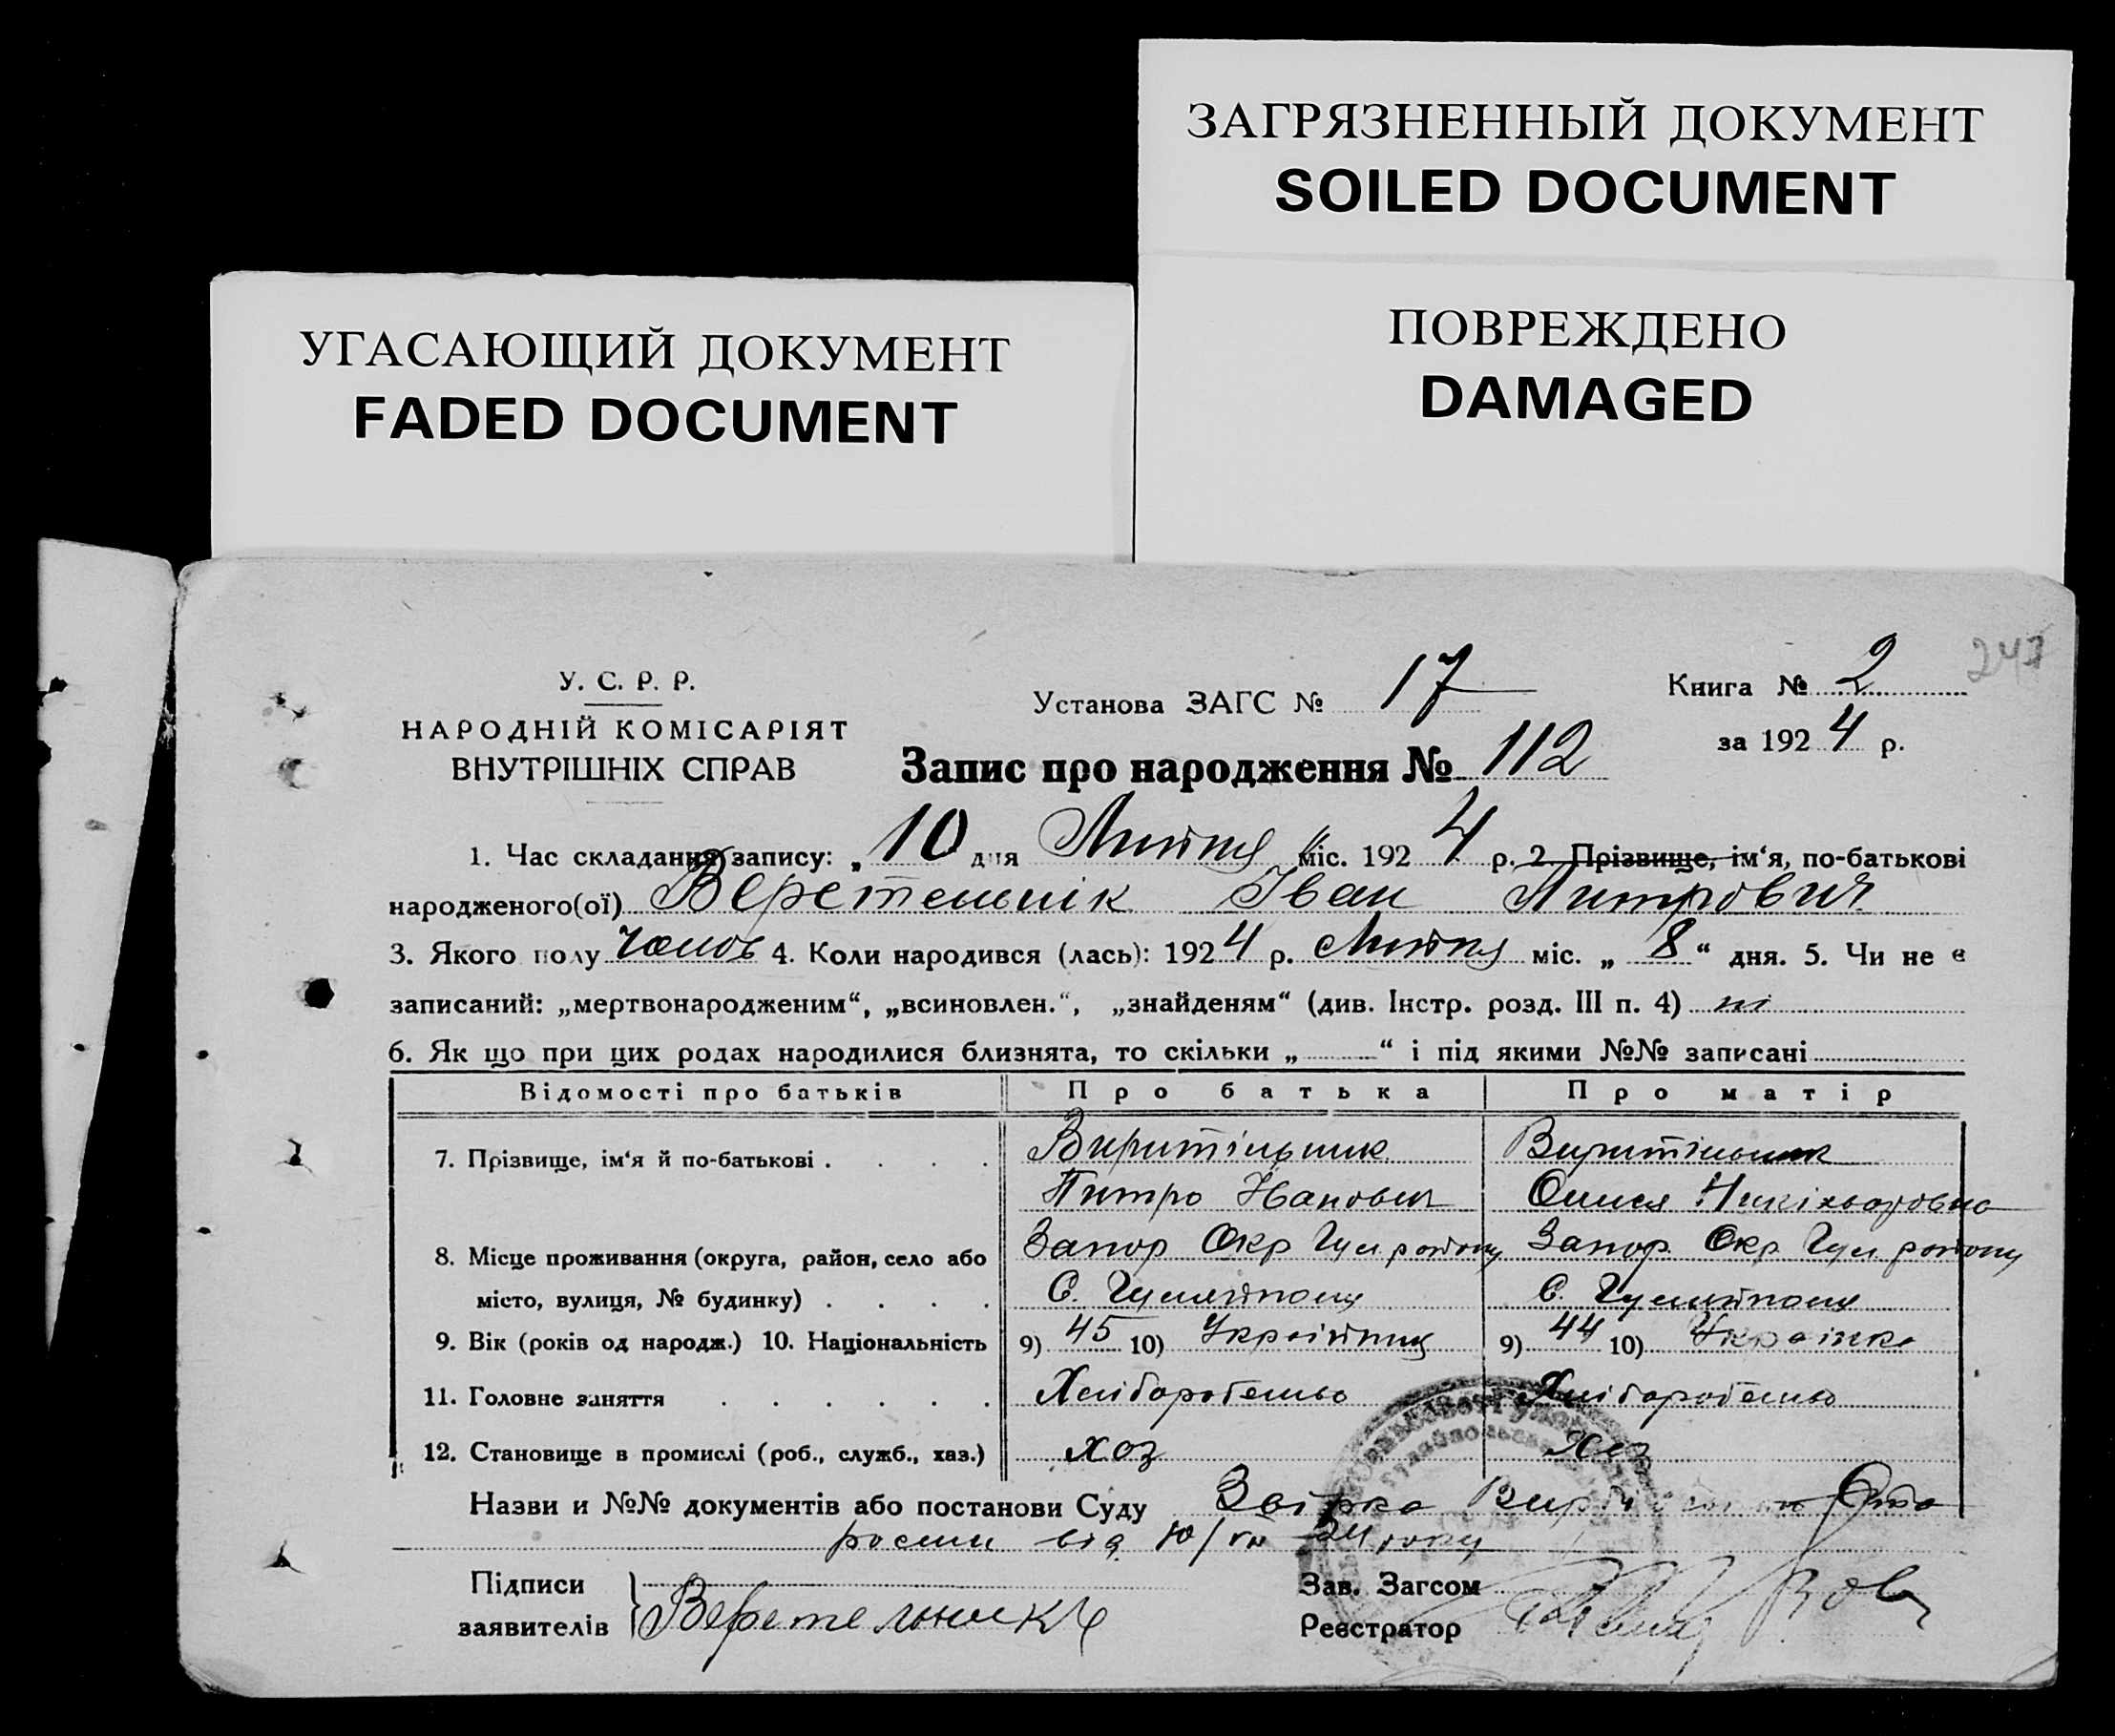 ЗАГРЯЗНЕННЫЙ ДОКУМЕНТ
SOILED DOCUMENT
УГАСАЮЩИЙ ДОКУМЕНТ
FADED DOCUMENT
ПОВРЕЖДЕНО
DAMAGED
247
У. С. Р. Р.
НАРОДНІЙ КОМІСАРІЯТ
ВНУТРІШНІХ СПРАВ
Установа ЗАГС № 17
Книга № 2
за 1924 р.
Запис про народження № 112
1. Час складання запису: „10 дня Липня міс. 1924 р. 2. Прізвище, ім‘я, по-батькові
народженого(ої) Веретельнік Іван Питрович
3. Якого полу чолов 4. Коли народився (лась): 1924 р. Липня міс. „8“ дня. 5. Чи не є
записаний: „мертвонародженим“, „всиновлен.“, „знайденям“ (див. Інстр. розд. III п. 4) ні
6. Як що при цих родах народилися близнята, то скільки „ “ і під якими №№ записані
Відомості про батьків Про батька Про матір
7. Прізвище, ім‘я й по-батькові . . . . Виритільник Виритільник
Питро Іванович Олися
8. Місце проживання (округа, район, село або Запор Окр Гул району Запор. Окр Гул району
місто, вулиця, № будинку) . . . . С. Гуляйполя С. Гуляйполя
9. Вік (років од народж.) 10. Національність 9) 45 10) Україниц 9) 44 10) Українка
11. Головне заняття . . . . . . Хліборобство Хліборобство
12. Становище в промислі (роб., служб., хаз.) хоз хоз
Назви и №№ документів або постанови Суду
від 10/VII 24 року
Підписи
заявителів
Веретельник
Зав. Загсом
Реєстратор